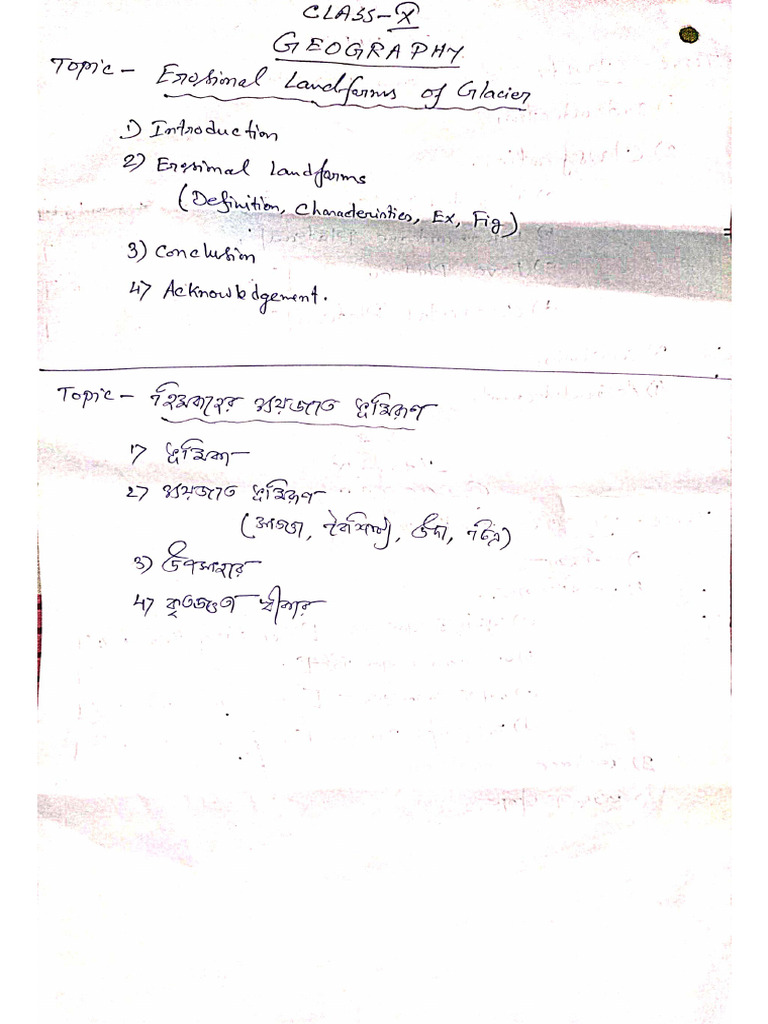 CLASS-X
GEOGRAPHY
Topic - Erosional Landforms of Glacier
1) Introduction
2) Erosional Landforms
(Definition, Characteristics, Ex, Fig)
3) Conclusion
4) Acknowledgement.
Topic - হিমবাহের ক্ষয়জাত ভূমিরূপ
1) ভূমিকা
2) ক্ষয়জাত ভূমিরূপ
(সংজ্ঞা, বৈশিষ্ট্য, উদা, চিত্র)
3) উপসংহার
4) কৃতজ্ঞতা স্বীকার